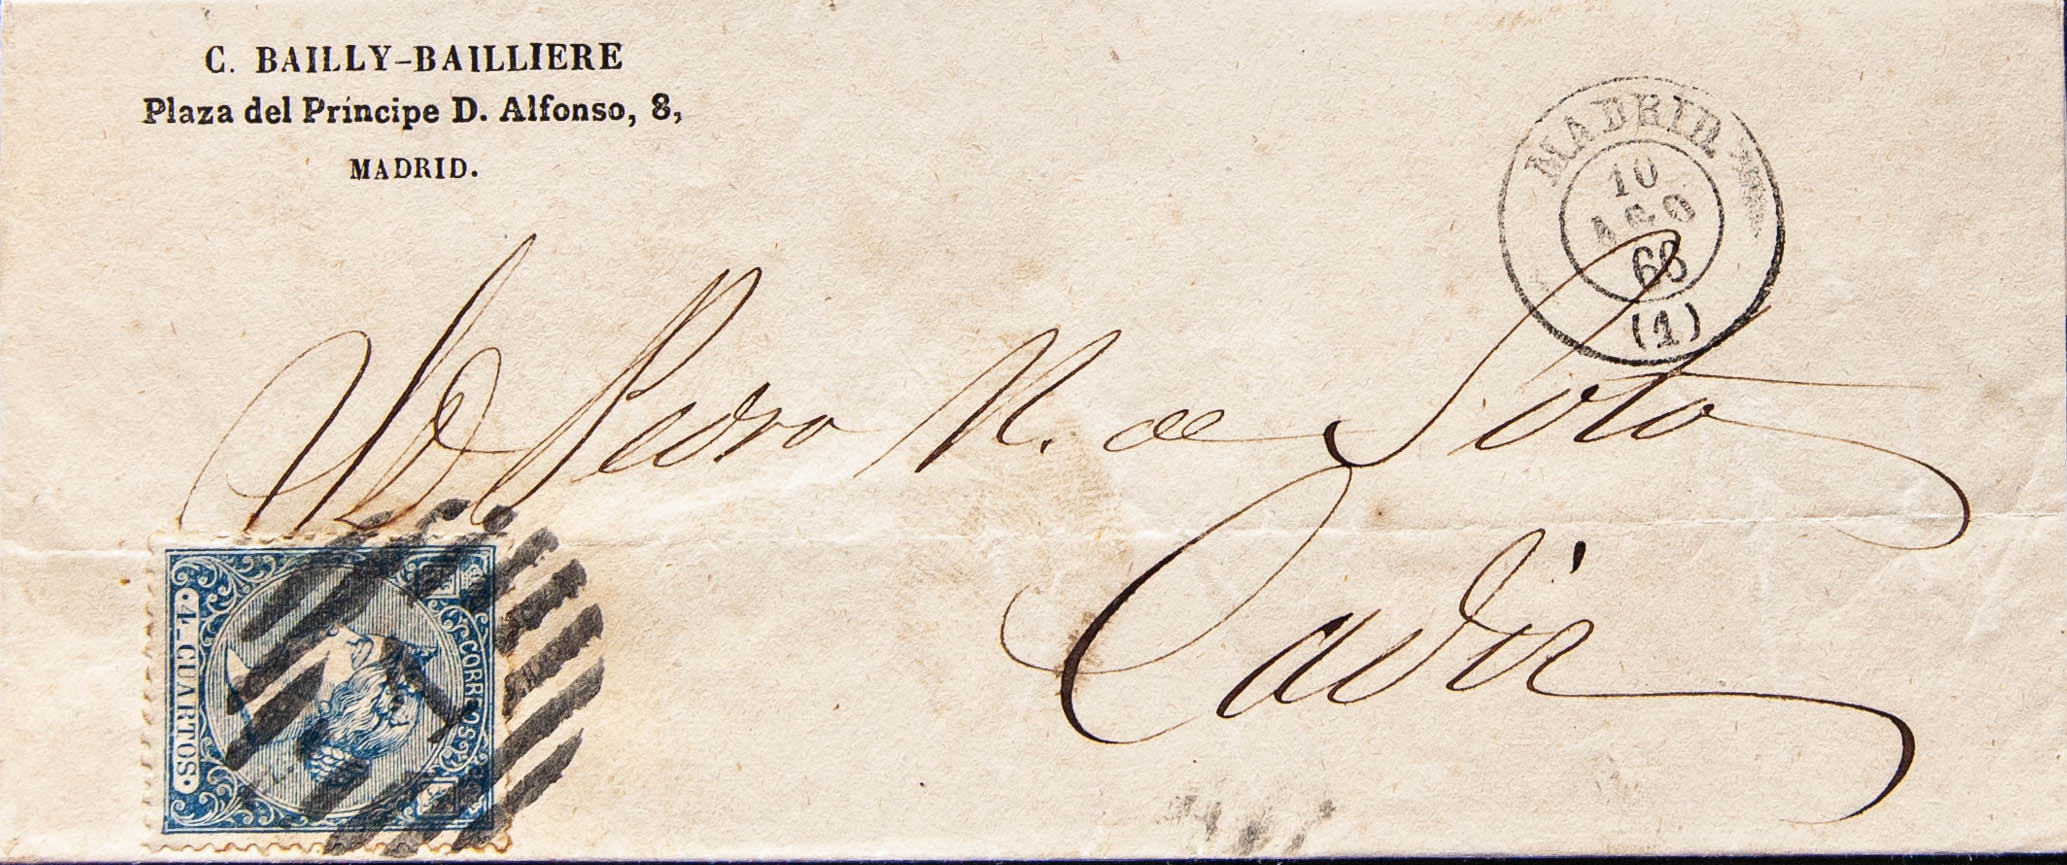 C. BAILLY-BAILLIERE
Plaza del Príncipe D. Alfonso, 8,
MADRID.
MADRID
10
AGO
66
(1)
D Pedro N. de Soto
Cadiz
CORREOS
4 CUARTOS